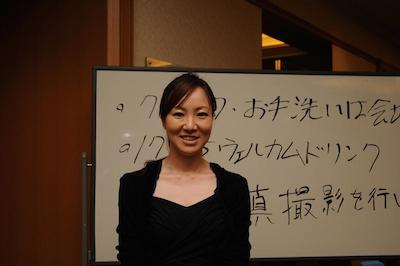 ・ク ク・お手洗いは会
ウェルカムドリンク
真撮影を行い